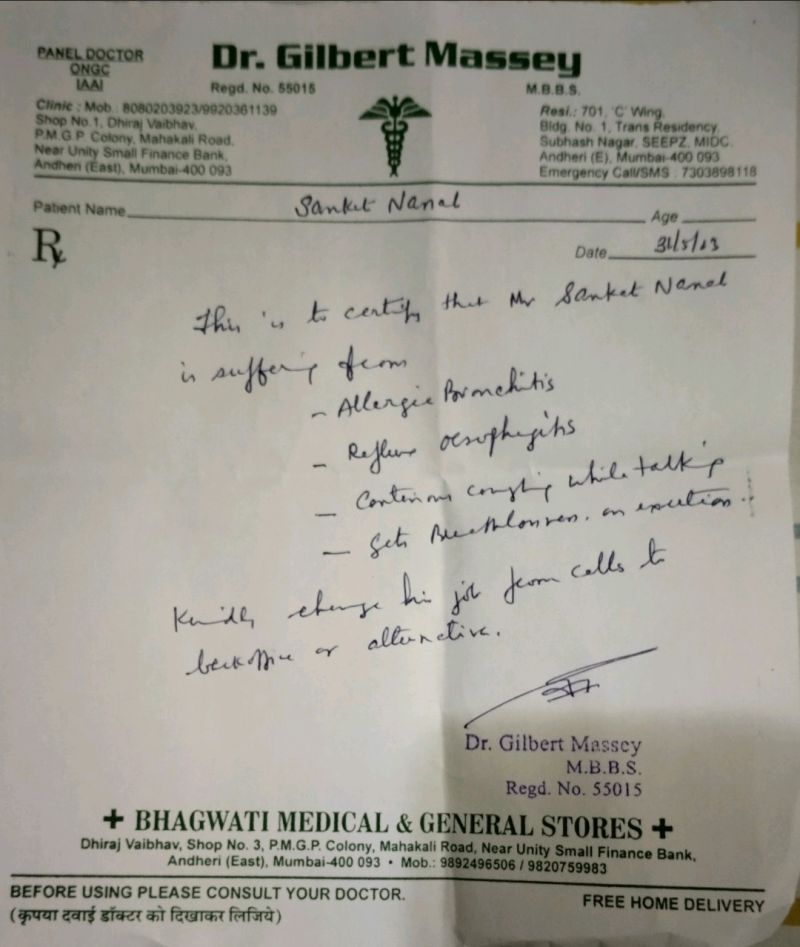 PANEL DOCTOR
ONGC
IAAI
Dr. Gilbert Massey
Regd. No. 55015
M.B.B.S.
Clinic : Mob : 8080203923/9920361139
Shop No.1, Dhiraj Vaibhav,
P.M.G.P. Colony, Mahakali Road,
Near Unity Small Finance Bank,
Andheri (East), Mumbai-400 093
Resi.: 701, 'C' Wing,
Bldg. No. 1, Trans Residency,
Subhash Nagar, SEEPZ, MIDC,
Andheri (E), Mumbai-400 093
Emergency Call/SMS : 7303898118
Patient Name Sanket Nanal Age
Rx
Date 31/5/23
This is to certify that Mr Sanket Nanal
is suffering from
- Allergic Bronchitis
- Reflux
- coughing while talking
- Gets on exertion.
Kindly change his job from calls to
backoffice or alternative.
Dr. Gilbert Massey
M.B.B.S.
Regd. No. 55015
+ BHAGWATI MEDICAL & GENERAL STORES +
Dhiraj Vaibhav, Shop No. 3, P.M.G.P. Colony, Mahakali Road, Near Unity Small Finance Bank,
Andheri (East), Mumbai-400 093 • Mob.: 9892496506 / 9820759983
BEFORE USING PLEASE CONSULT YOUR DOCTOR.
(कृपया दवाई डॉक्टर को दिखाकर लिजिये)
FREE HOME DELIVERY